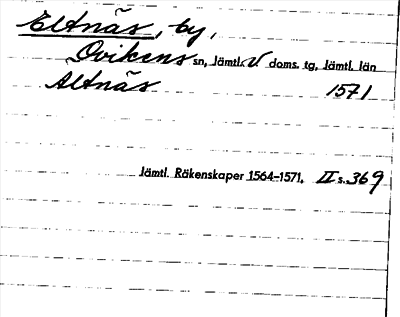 Eltnäs, by,
Ovikens sn, Jämtl. V doms. tg, Jämtl. län
Altnäs 1571
Jämtl. Räkenskaper 1564-1571, II s. 369